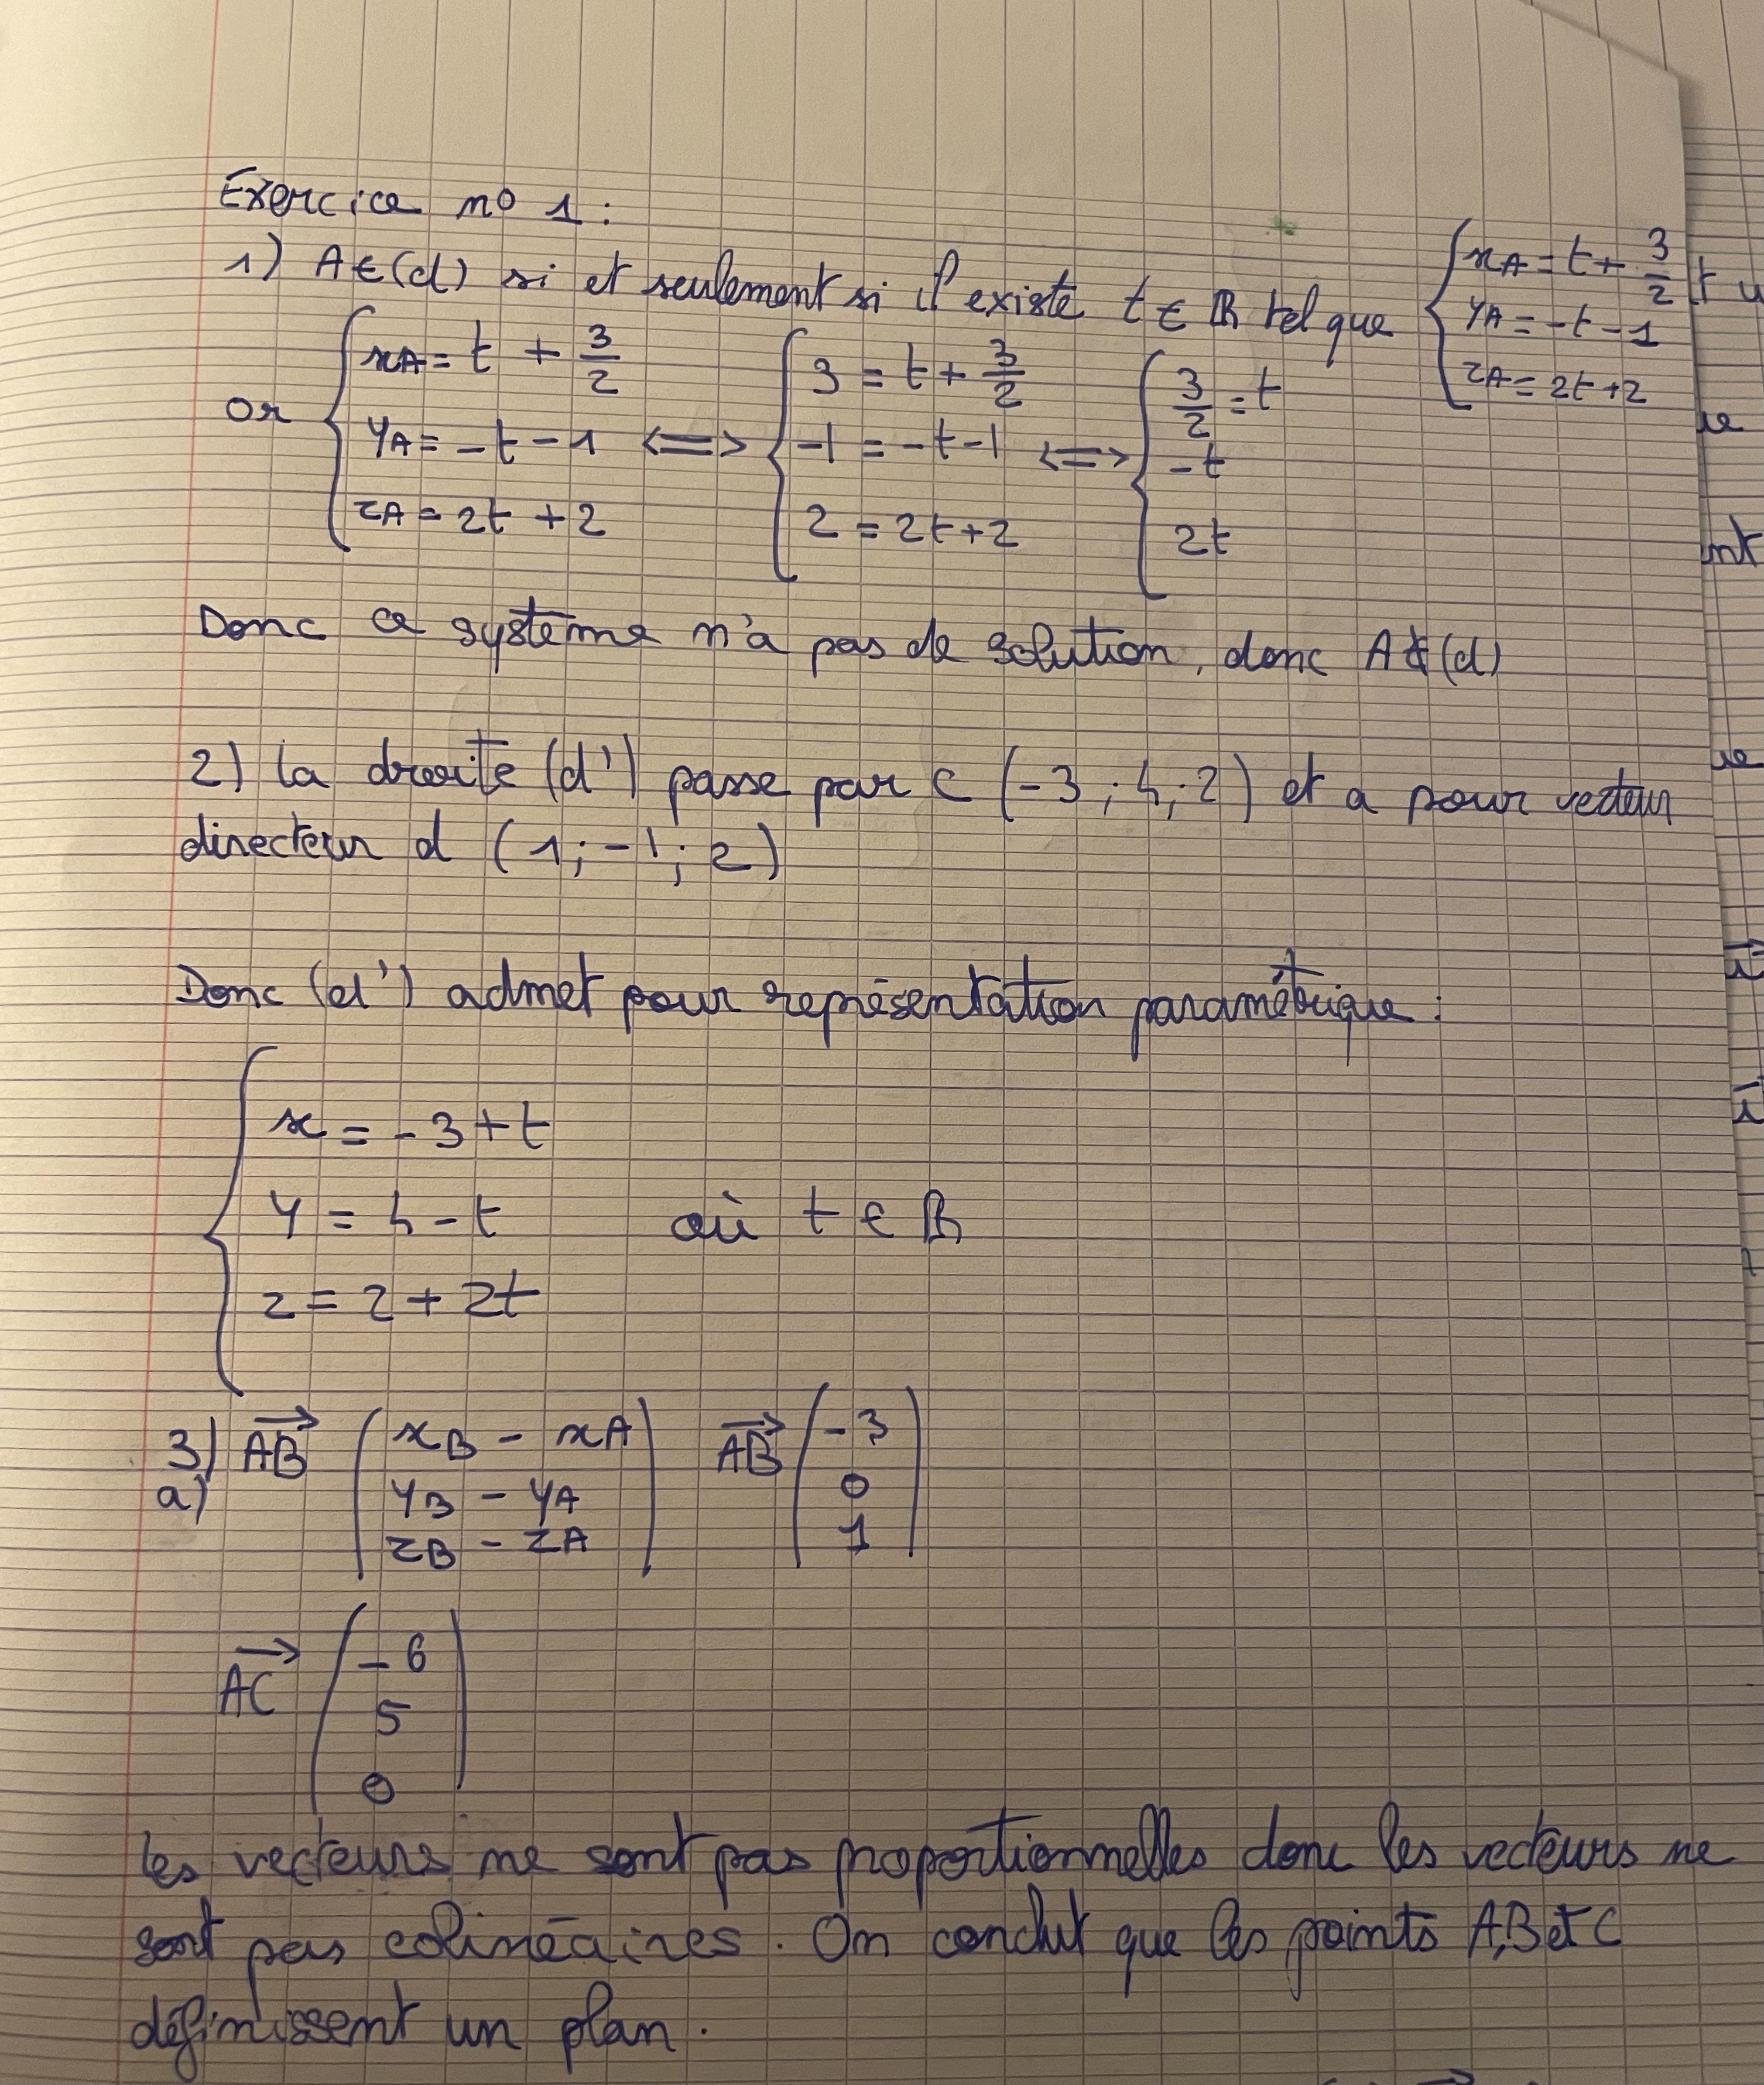 Exercice no 1 :
1) A∈(d) si et seulement si il existe t ∈ ℝ tel que { xA = t + 3/2
yA = -t - 1
zA = 2t + 2
or { xA = t + 3/2 <=> { 3 = t + 3/2 <=> { 3/2 = t
yA = -t - 1 -1 = -t - 1 -t
zA = 2t + 2 2 = 2t + 2 2t
Donc ce système n'a pas de solution, donc A∉(d)
2) la droite (d') passe par C (-3 ; 4 ; 2) et a pour vecteur
directeur d (1 ; -1 ; 2)
Donc (d') admet pour représentation paramétrique :
{ x = -3 + t
y = 4 - t où t ∈ ℝ
z = 2 + 2t
3) a) AB→ ( xB - xA ) AB→ ( -3 )
yB - yA 0
zB - zA 1
AC→ ( -6 )
5
0
les vecteurs ne sont pas proportionnelles donc les vecteurs ne
sont pas colinéaires. On conclut que les points A,B et C
définissent un plan.